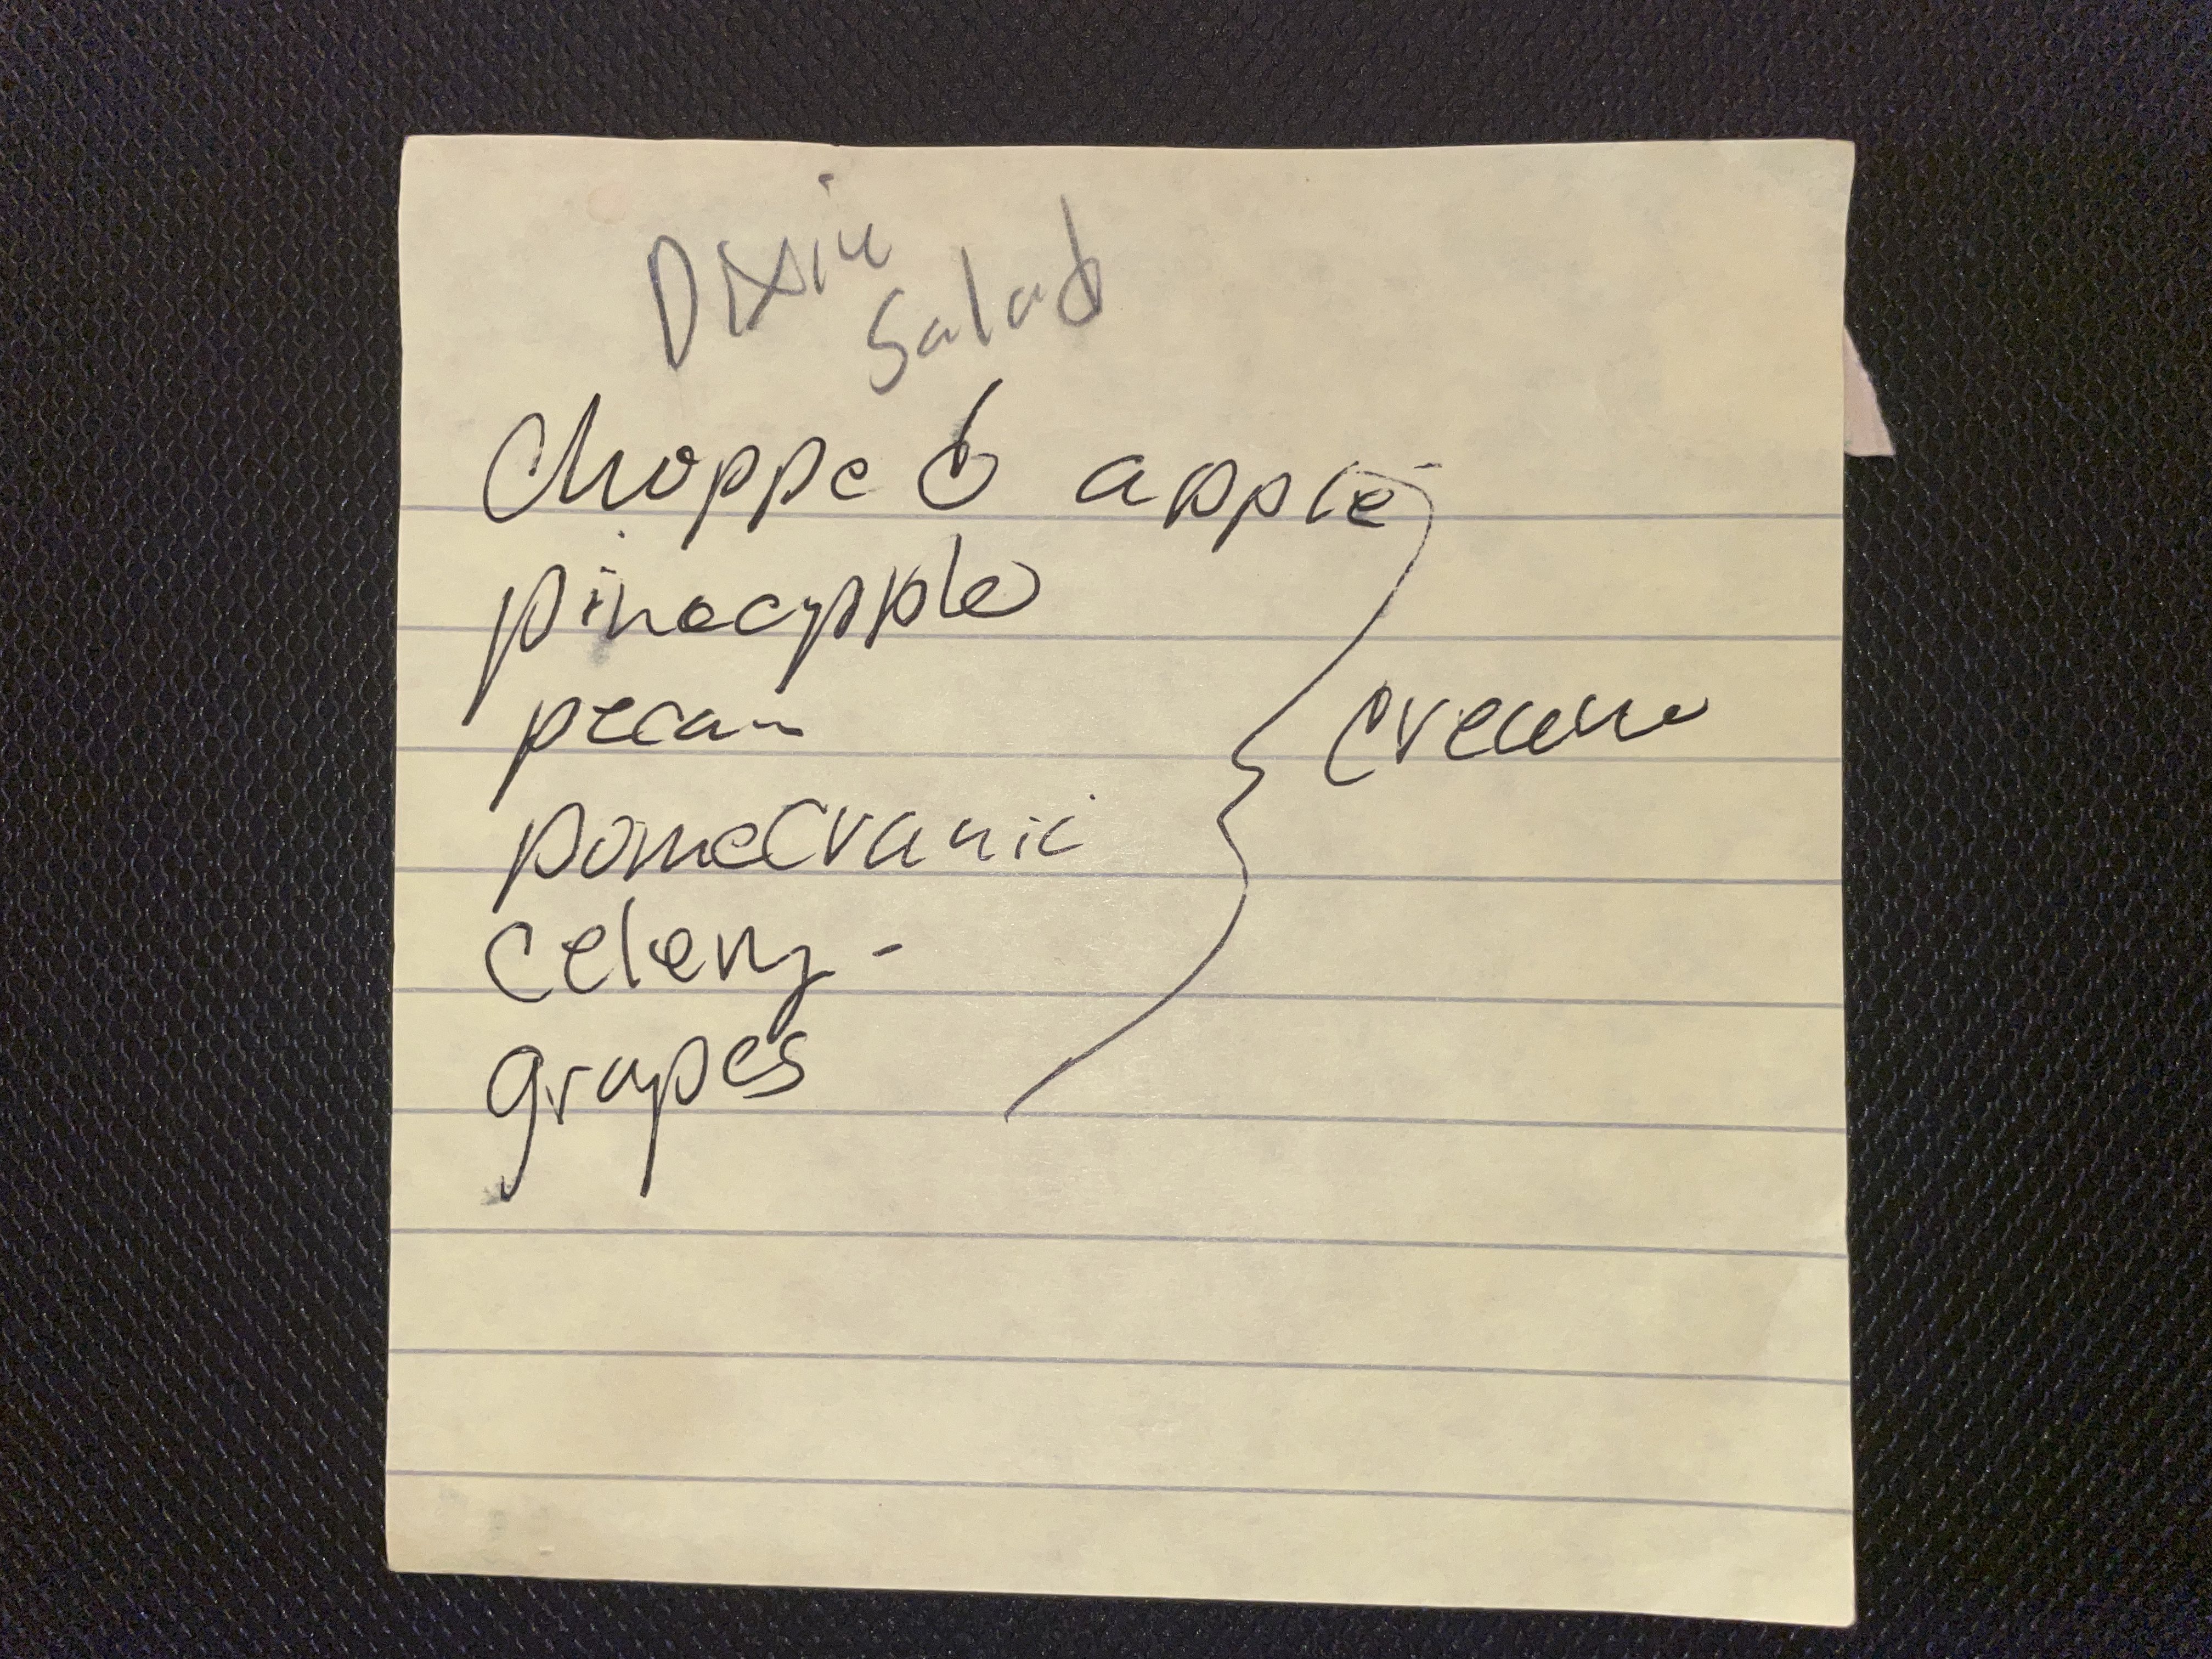 Dixie
Salad
Chopped apple
pineapple
pecan
pomecranic
celery -
grapes
cream